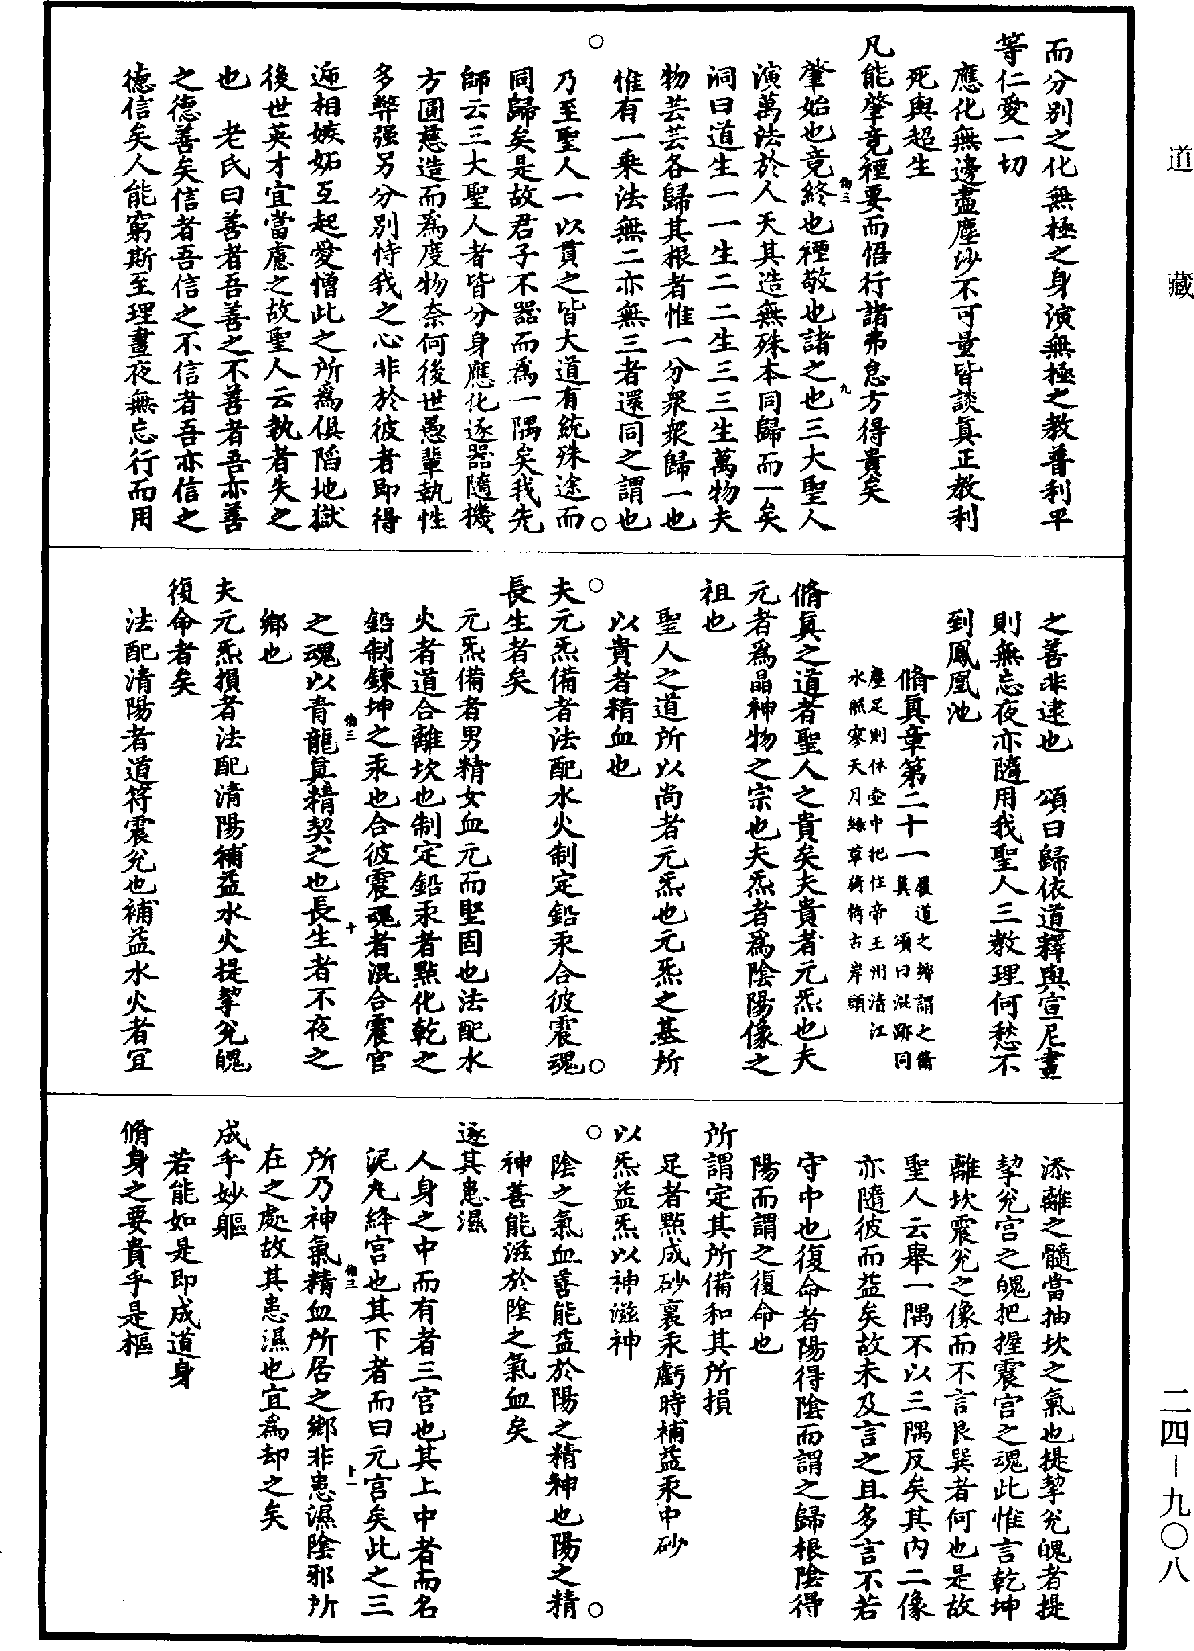 道藏
而分別之化無極之身演無極之教普利平
等仁愛一切
應化無邊盡塵沙不可量皆談真正教利
死與超生
凡能肇竟種要而悟行諸弗怠方得貴矣
肇始也竟終也種敬也諸之也三大聖人
演萬法於人天其造無殊本同歸而一矣
洞曰道生一一生二二生三三生萬物夫
物芸芸各歸其根者惟一分衆衆歸一也
惟有一乘法無二亦無三者還同之謂也
乃至聖人一以貫之皆大道有統殊途而
同歸矣是故君子不器而爲一隅矣我先
師云三大聖人者皆分身應化逐器隨機
方圓慈造而爲度物奈何後世愚輩執性
多弊强另分別恃我之心非於彼者即得
遞相嫉妬互起愛憎此之所爲俱陷地獄
後世英才宜當慮之故聖人云執者失之
也　老氏曰善者吾善之不善者吾亦善
之德善矣信者吾信之不信者吾亦信之
德信矣人能窮斯至理晝夜無忘行而用
之善非逮也　頌曰歸依道釋與宣尼晝
則無忘夜亦隨用我聖人三教理何愁不
到鳳凰池
脩真章第二十一
塵足則休壺中把住帝王州清江
水照寒天月綠草漪漪古岸頭
脩真之道者聖人之貴矣夫貴者元炁也夫
元者爲晶神物之宗也夫炁者爲陰陽像之
祖也
聖人之道所以尚者元炁也元炁之基所
以貴者精血也
夫元炁備者法配水火制定鉛汞合彼震魂
長生者矣
元炁備者男精女血元而堅固也法配水
火者道合離坎也制定鉛汞者點化乾之
鉛制鍊坤之汞也合彼震魂者混合震宫
之魂以青龍真精契之也長生者不夜之
鄉也
夫元炁損者法配清陽補益水火提挈兊魄
復命者矣
法配清陽者道符震兊也補益水火者宜
添離之髓當抽坎之氣也提挈兊魄者提
挈兊宫之魄把握震宫之魂此惟言乾坤
離坎震兊之像而不言艮巽者何也是故
聖人云舉一隅不以三隅反矣其内二像
亦隨彼而益矣故未及言之且多言不若
守中也復命者陽得陰而謂之歸根陰得
陽而謂之復命也
所謂定其所備和其所損
足者點成砂裏汞虧時補益汞中砂
以炁益炁以神滋神
陰之氣血善能益於陽之精神也陽之精
神善能滋於陰之氣血矣
逐其患濕
人身之中而有者三宫也其上中者而名
泥丸絳宫也其下者而曰元宫矣此之三
所乃神氣精血所居之鄉非患濕陰邪所
在之處故其患濕也宜爲却之矣
成乎妙軀
若能如是即成道身
脩身之要貴乎是樞
二四—九〇八